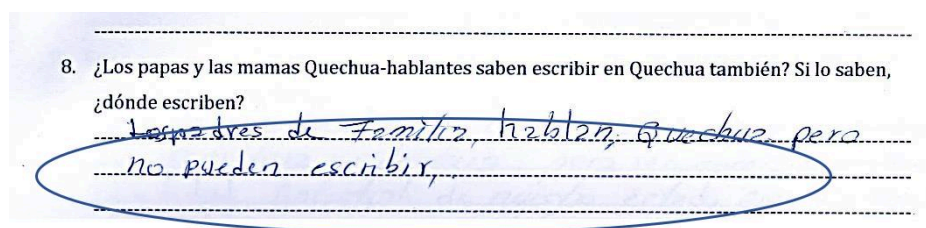 8. ¿Los papas y las mamas Quechua-hablantes saben escribir en Quechua también? Si lo saben,
¿dónde escriben?
Los padres de Familia, hablan, Quechua pero
no pueden escribir,.